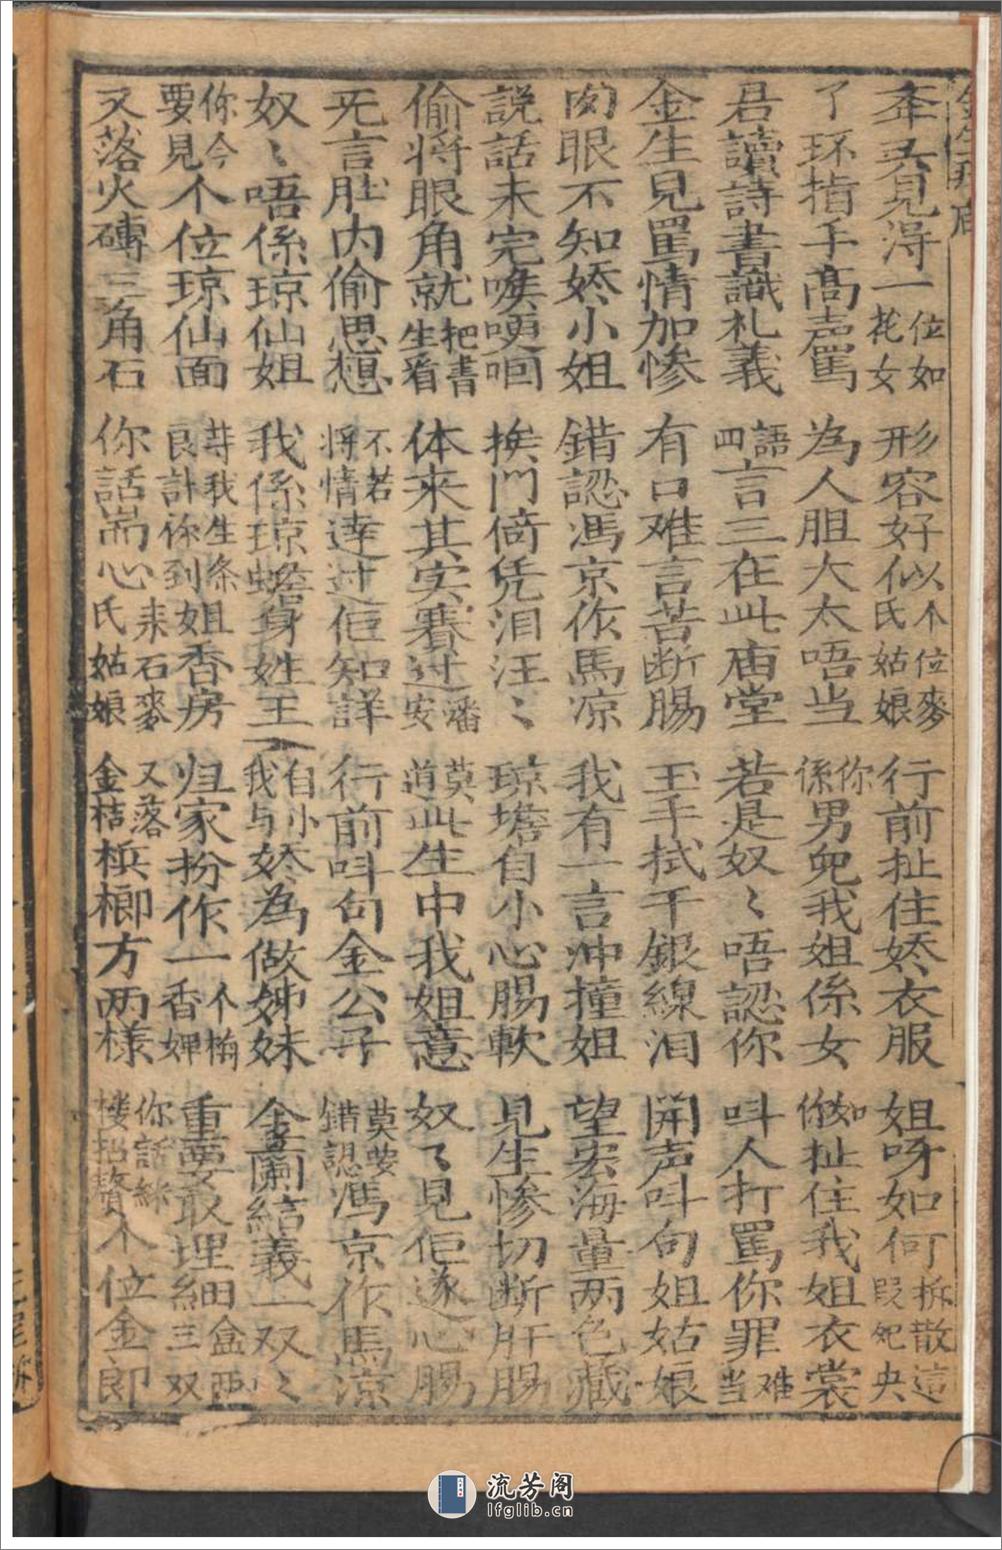 夲头見淂一位如花女 形容好似个位麥氏姑娘 行前扯住娇衣服 姐呀如何拆散這段妃央
了环指手髙声罵 為人胆大太唔当 你係男兜我姐係女 做如扯住我姐衣裳
君讀詩書識札義 四語言三在此庙堂 若是奴〻唔認你 呌人打罵你罪难当
金生見罵情加惨 有口难言苦断腸 玉手拭干銀線泪 開声呌句姐姑娘
肉眼不知娇小姐 錯認馮京作馬凉 我有一言冲撞姐 望宏海量两色藏
説話未完喉哽咽 挨門倚凭泪汪〻 琼蟾自小心腸軟 見生惨切断肝腸
偷將眼角就把書生看 体來其实賽过潘安 莫道此生中我姐意 奴〻見佢遂心腸
无言肚内偷思想 不若將情達过佢知詳 行前呌句金公子 莫要錯認馮京作馬凉
奴〻唔係琼仙姐 我係琼蟾身姓王 自小我与娇為做姊妹 金蘭結義一双〻
你今要見个位琼仙面 等我生条良計你到姐香房 归家扮作一个梅香婢 重要取埋細盒两三双
又落火磚三角石 你話耑心來石麥氏姑娘 又落金桔梹榔方两樣 你話綵楼招贅个位金郎
流芳阁
lfglib.cn